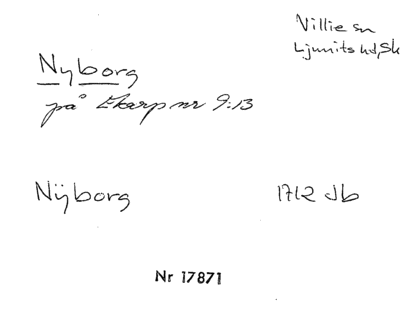 Villie sn
Ljunits hd, Sk
Nyborg
på Ekarp nr 9:13
Nÿborg 1712 Jb
Nr 17871